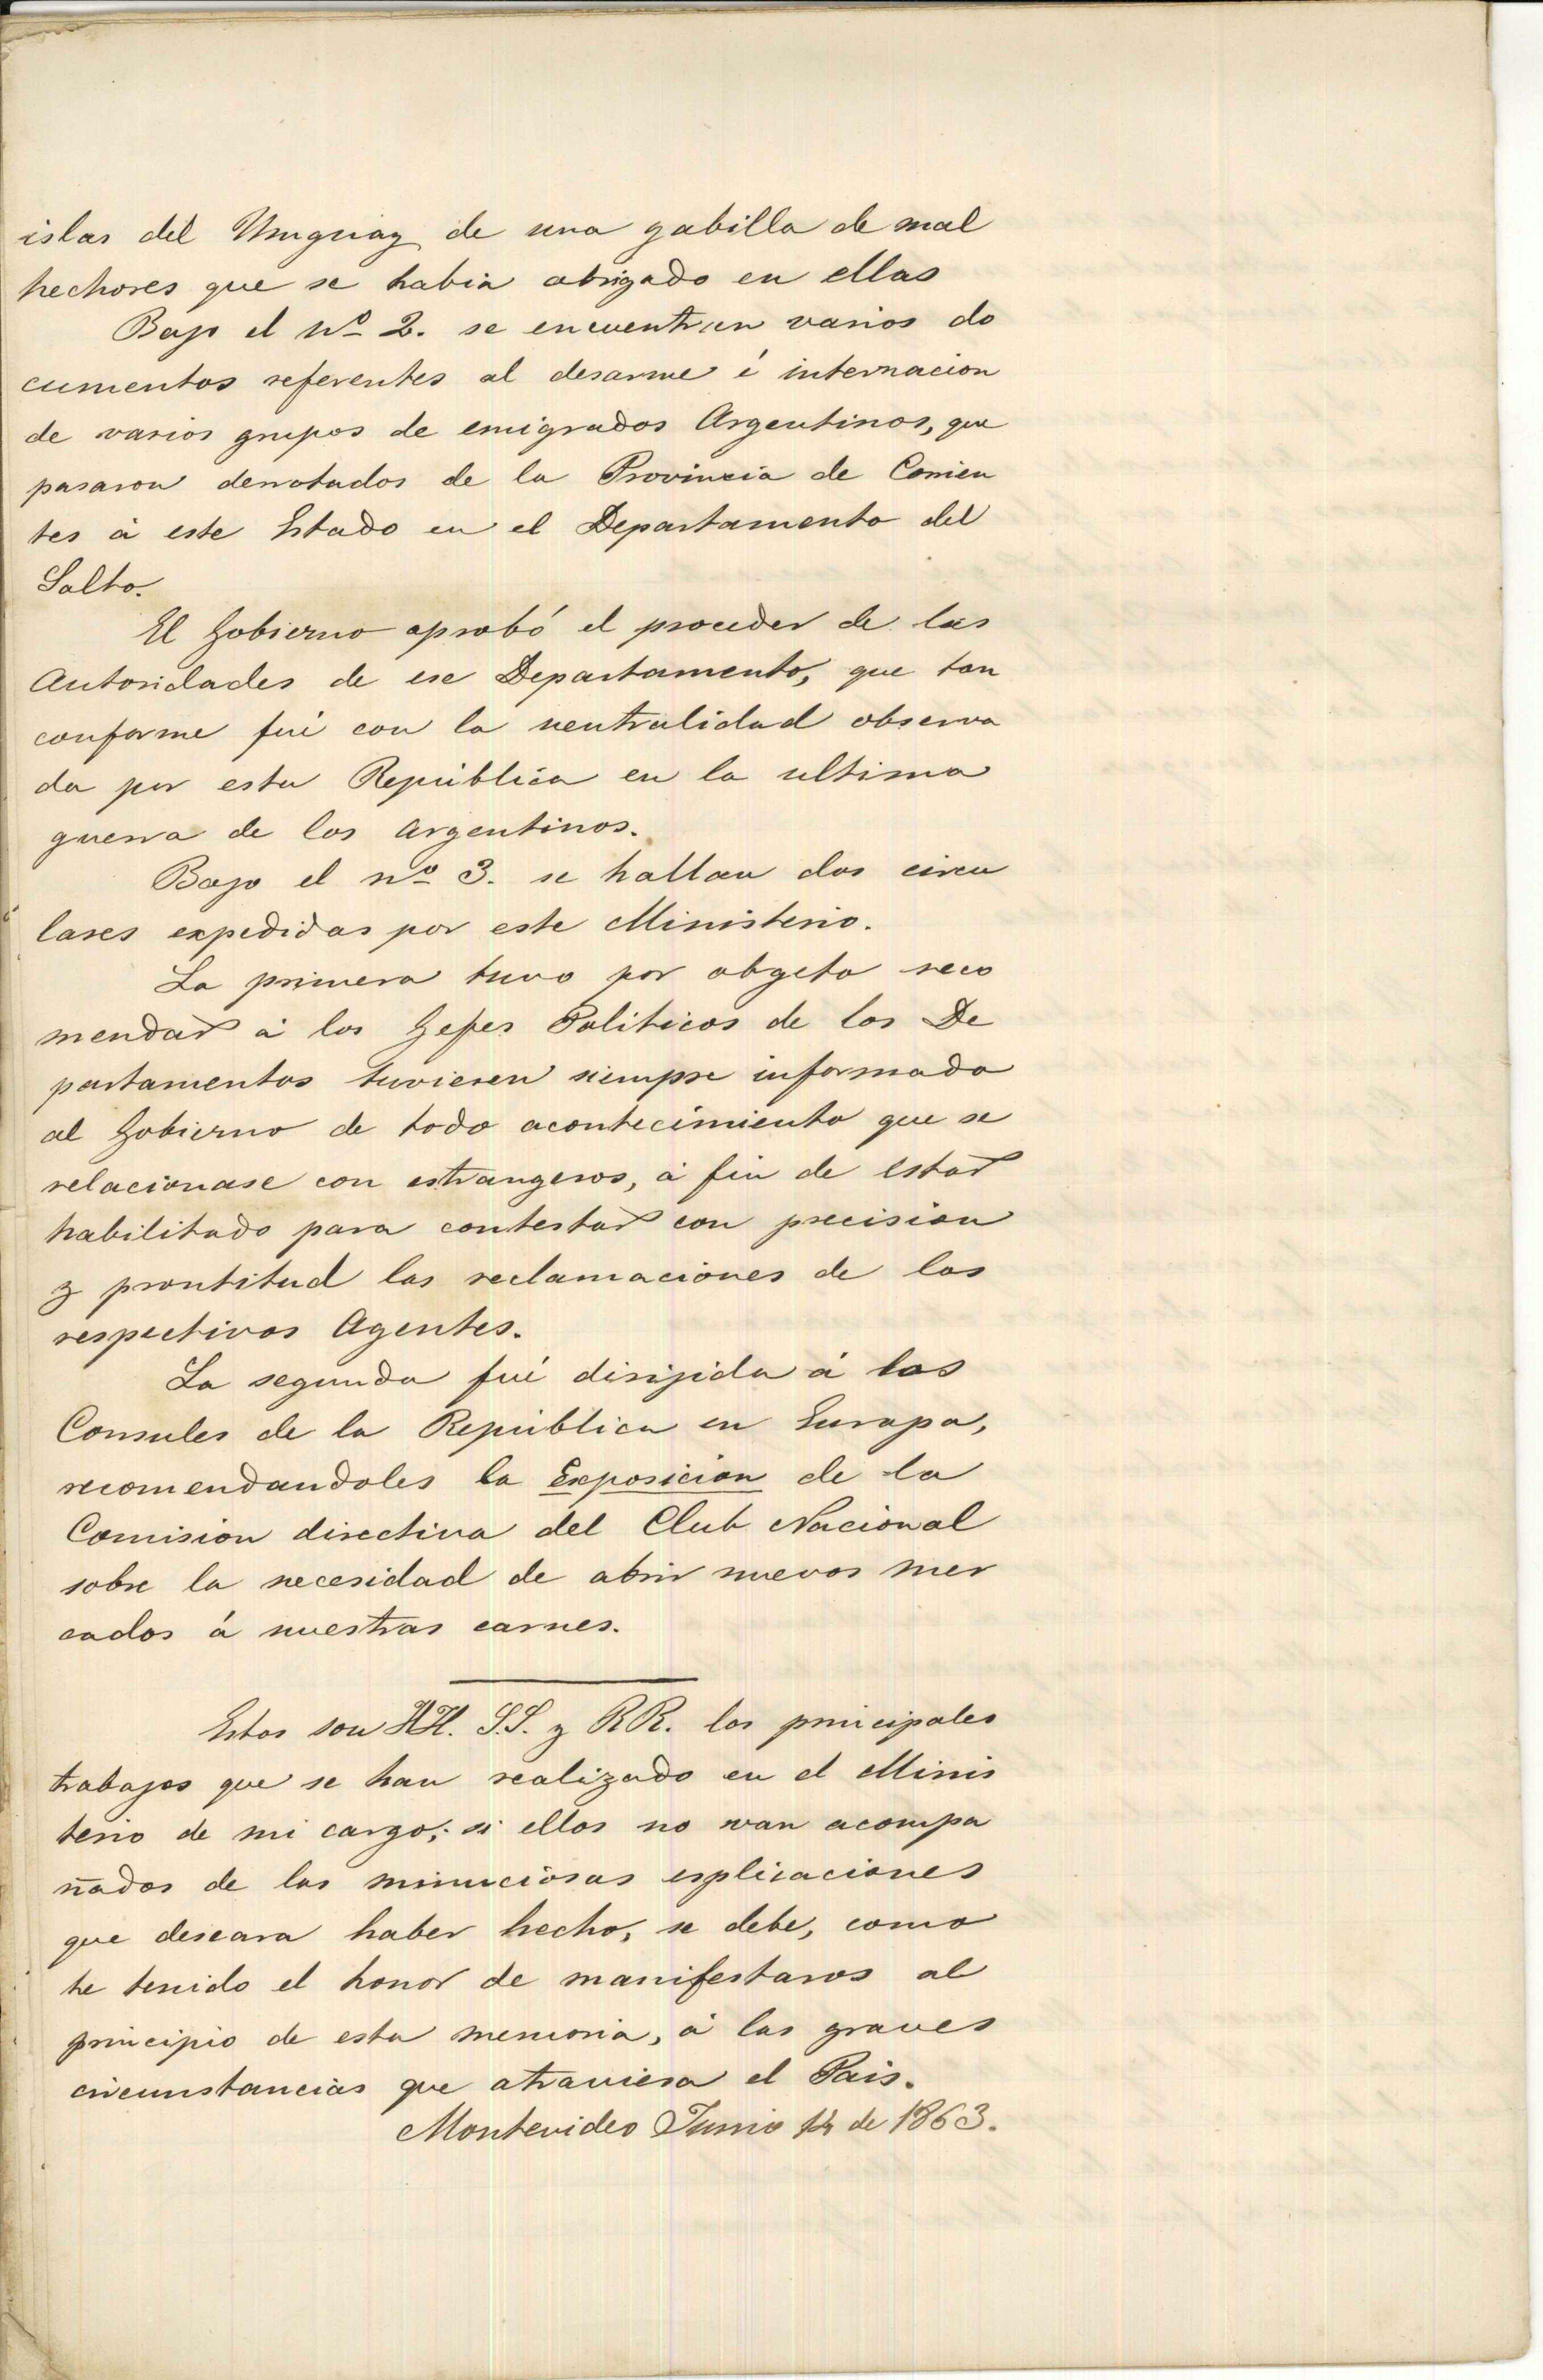 islas del Uruguay de una gabilla de mal
hechores que se habia abrigado en ellas
Bajo el nº 2. se encuentran varios do
cumentos referentes al desarme é internacion
de varios grupos de emigrados Argentinos, que
pasaron derrotados de la Provincia de Corrien
tes á este Estado en el Departamento del
Salto.
El Gobierno aprobó el proceder de las
Autoridades de ese Departamento, que tan
conforme fué con la neutralidad observa
da por esta República en la ultima
guerra de los Argentinos.
Bajo el nº 3. se hallan dos circu
lares expedidas por este Ministerio.
La primera tuvo por objeto reco
mendar á los Gefes Politicos de los De
partamentos tuviesen siempre informado
al Gobierno de todo acontecimiento que se
relacionase con estrangeros, á fin de estar
habilitado para contestar con precision
y prontitud las reclamaciones de los
respectivos Agentes.
La segunda fué dirijida á los
Consules de la República en Europa,
recomendandoles la Exposicion de la
Comision directiva del Club Nacional
sobre la necesidad de abrir nuevos mer
cados á nuestras carnes.
Estos son HH. S.S. y RR. los principales
trabajos que se han realizado en el Minis
terio de mi cargo; si ellos no van acompa
ñados de las minuciosas esplicaciones
que deseara haber hecho, se debe, como
he tenido el honor de manifestaros al
principio de esta memoria, á las graves
circunstancias que atraviesa el Pais.
Montevideo Junio 14 de 1863.